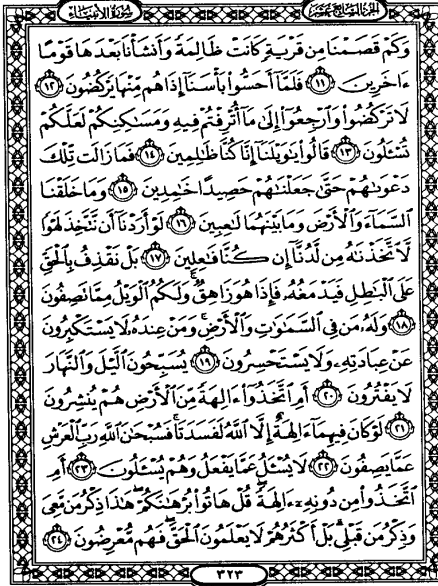 سورة الأنبياء
الجزء السابع عشر
وَكَمْ قَصَمْنَا مِن قَرْيَةٍ كَانَتْ ظَالِمَةً وَأَنشَأْنَا بَعْدَهَا قَوْمًا
ءَاخَرِينَ ﴿١١﴾ فَلَمَّآ أَحَسُّوا۟ بَأْسَنَآ إِذَا هُم مِّنْهَا يَرْكُضُونَ ﴿١٢﴾
لَا تَرْكُضُوا۟ وَٱرْجِعُوٓا۟ إِلَىٰ مَآ أُتْرِفْتُمْ فِيهِ وَمَسَٰكِنِكُمْ لَعَلَّكُمْ
تُسْـَٔلُونَ ﴿١٣﴾ قَالُوا۟ يَٰوَيْلَنَآ إِنَّا كُنَّا ظَٰلِمِينَ ﴿١٤﴾ فَمَا زَالَت تِّلْكَ
دَعْوَىٰهُمْ حَتَّىٰ جَعَلْنَٰهُمْ حَصِيدًا خَٰمِدِينَ ﴿١٥﴾ وَمَا خَلَقْنَا
ٱلسَّمَآءَ وَٱلْأَرْضَ وَمَا بَيْنَهُمَا لَٰعِبِينَ ﴿١٦﴾ لَوْ أَرَدْنَآ أَن نَّتَّخِذَ لَهْوًا
لَّٱتَّخَذْنَٰهُ مِن لَّدُنَّآ إِن كُنَّا فَٰعِلِينَ ﴿١٧﴾ بَلْ نَقْذِفُ بِٱلْحَقِّ
عَلَى ٱلْبَٰطِلِ فَيَدْمَغُهُۥ فَإِذَا هُوَ زَاهِقٌ ۚ وَلَكُمُ ٱلْوَيْلُ مِمَّا تَصِفُونَ
﴿١٨﴾ وَلَهُۥ مَن فِى ٱلسَّمَٰوَٰتِ وَٱلْأَرْضِ ۚ وَمَنْ عِندَهُۥ لَا يَسْتَكْبِرُونَ
عَنْ عِبَادَتِهِۦ وَلَا يَسْتَحْسِرُونَ ﴿١٩﴾ يُسَبِّحُونَ ٱلَّيْلَ وَٱلنَّهَارَ
لَا يَفْتُرُونَ ﴿٢٠﴾ أَمِ ٱتَّخَذُوٓا۟ ءَالِهَةً مِّنَ ٱلْأَرْضِ هُمْ يُنشِرُونَ
﴿٢١﴾ لَوْ كَانَ فِيهِمَآ ءَالِهَةٌ إِلَّا ٱللَّهُ لَفَسَدَتَا ۚ فَسُبْحَٰنَ ٱللَّهِ رَبِّ ٱلْعَرْشِ
عَمَّا يَصِفُونَ ﴿٢٢﴾ لَا يُسْـَٔلُ عَمَّا يَفْعَلُ وَهُمْ يُسْـَٔلُونَ ﴿٢٣﴾ أَمِ
ٱتَّخَذُوا۟ مِن دُونِهِۦٓ ءَالِهَةً ۖ قُلْ هَاتُوا۟ بُرْهَٰنَكُمْ ۖ هَٰذَا ذِكْرُ مَن مَّعِىَ
وَذِكْرُ مَن قَبْلِى ۗ بَلْ أَكْثَرُهُمْ لَا يَعْلَمُونَ ٱلْحَقَّ ۖ فَهُم مُّعْرِضُونَ ﴿٢٤﴾
٣٢٣